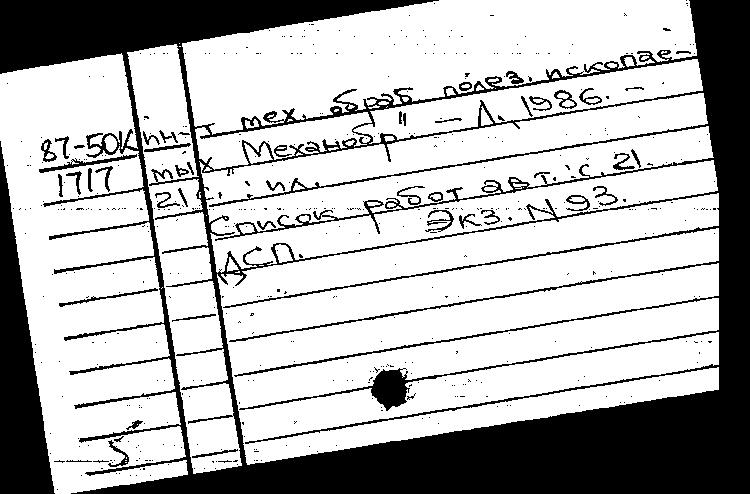 ин-т мех. обраб полез. ископае-
87-50К
1717
мых „Механобр" – Л., 1986. –
21 с. : ил.
Список работ авт.: с. 21.
ДСП. Экз. N 93.
5